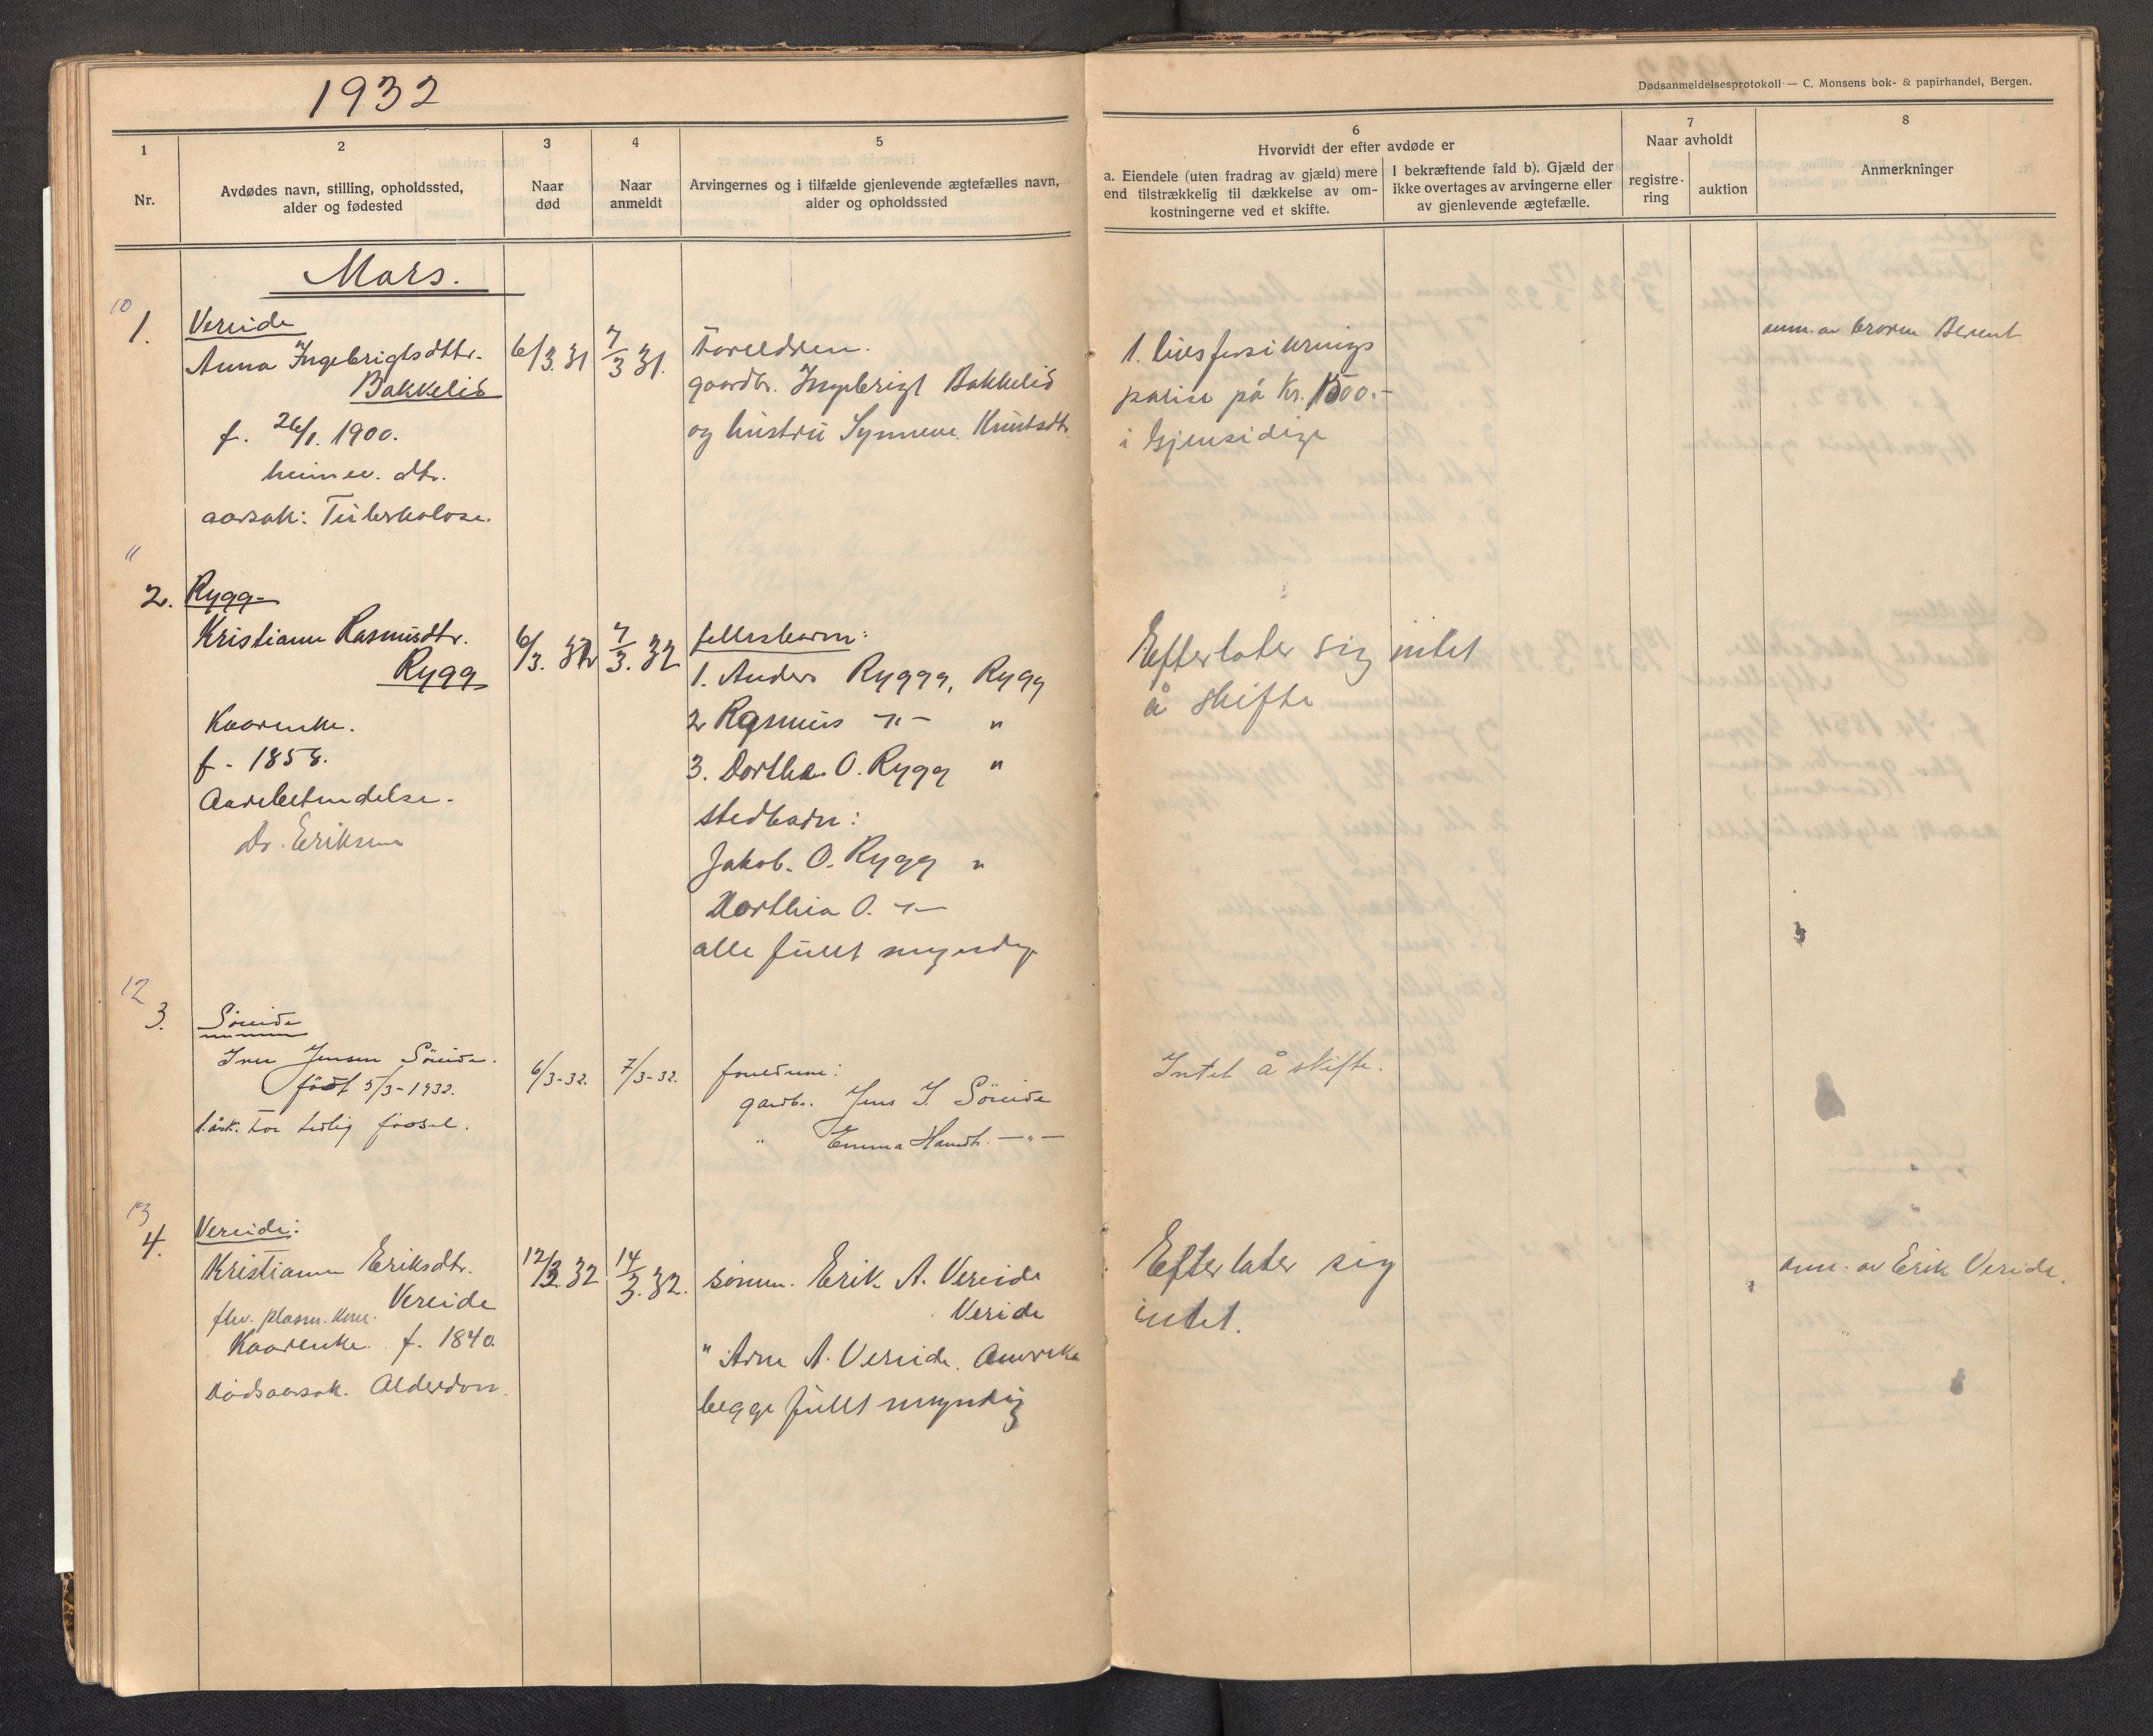 1932
Dødsanmeldelsesprotokoll — C. Monsens bok- & papirhandel, Bergen.
1
Nr.
2
Avdødes navn, stilling, opholdssted,
alder og fødested
3
Naar
død
4
Naar
anmeldt
5
Arvingernes og i tilfælde gjenlevende ægtefælles navn,
alder og opholdssted
6
Hvorvidt der efter avdøde er
a. Eiendele (uten fradrag av gjæld) mere
end tilstrækkelig til dækkelse av om-
kostningerne ved et skifte.
I bekræftende fald b). Gjæld der
ikke overtages av arvingerne eller
av gjenlevende ægtefælle.
7
Naar avholdt
registre-
ring
auktion
8
Anmerkninger
Mars.
10
1.
Vereide
Anna Ingebrigtsdttr.
Bakkelid
f. 26/1. 1900.
heimev. dtr.
aarsak: Tuberkolose.
6/3. 31
7/3 31.
Foreldren.
gaardbr. Ingebrigt Bakkelid
og hustru Synneve Knutsdtr.
1. livsforsikrings
polise på Kr. 1500.-
i Gjensidige
anm. av broren Berent
11
2.
Rygg
Kristianne Rasmusdtr.
Rygg
Kaarenke.
f. 1858.
Aarebetendelse.
Dr. Eriksen
6/3. 32
7/3. 32
fellesbarn:
1. Anders Rygg, Rygg
2 Rasmus -"- "
3. Dorthea O. Rygg "
stedbarn:
Jakob. O. Rygg "
Dorthea O. -"-
alle fullt myndige
Efterlater sig intet
å skifte
12
3.
Söreide
Iver Jensen Söreide.
født 5/3-1932.
d.årsk. For tidlig fødsel.
6/3-32.
7/3-32.
foreldrene:
gardbr. Jens I. Söreide
" Emma Hansdtr. —"—
Intet å skifte.
13
4.
Vereide:
Kristianne Eriksdtr.
Vereide
fhv. plassm. kone
Kaarenke. f. 1840.
Dødsaarsak. Alderdom.
12/3 32
14/3. 32.
sønnen. Erik A. Vereide
Veride
" Arne A. Vereide. Amerika
begge fullt myndig
Efterlater sig
intet.
anm. av Erik Veride.